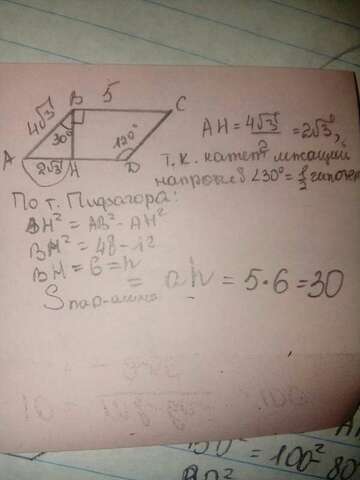 B 5 C
4√3 30° 120°
A 2√3 H D
AH = 4√3/2 = 2√3,
т.к. катет лежащий
напротив ∠30° = 1/2 гипотен
По т. Пифагора:
BH² = AB² - AH²
BH² = 48 - 12
BH = 6 = h
S пар-амма = ah = 5·6 = 30
= 100² - 80
BD²